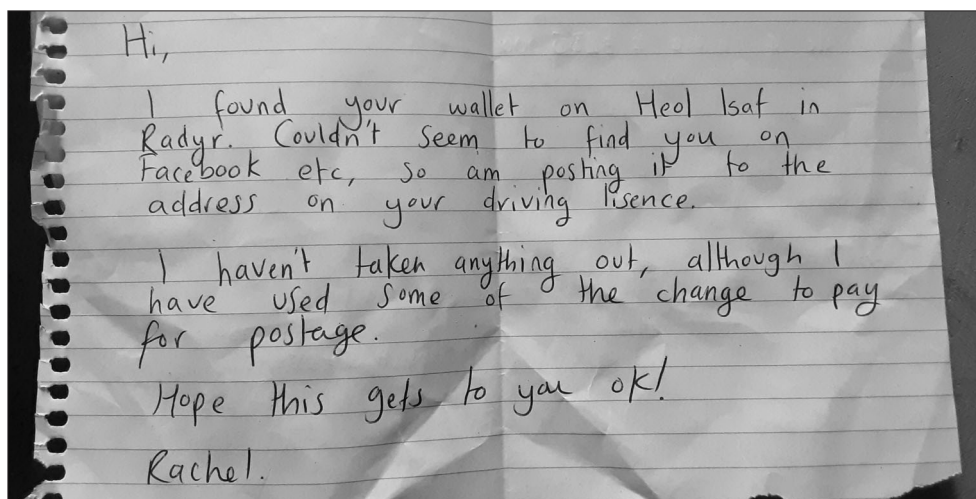 Hi,
I found your wallet on Heol Isaf in
Radyr. Couldn't seem to find you on
Facebook etc, so am posting it to the
address on your driving lisence.
I haven't taken anything out, although I
have used some of the change to pay
for postage.
Hope this gets to you ok!
Rachel.